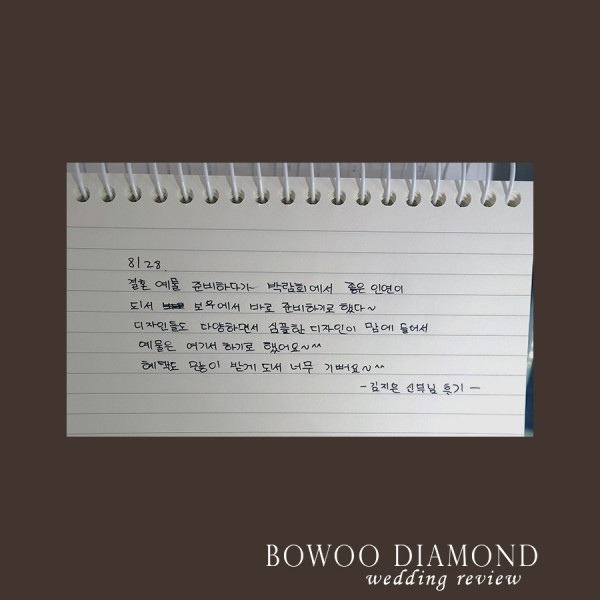 8/28.
결혼 예물 준비하다가 박람회에서 좋은 인연이
되서 보우에서 바로 준비하기로 했다~
디자인들도 다양하면서 심플한 디자인이 맘에 들어서
예물은 여기서 하기로 했어요~^^
혜택도 많이 받게 되서 너무 기뻐요~^^
- 김지은 신부님 후기 -
BOWOO DIAMOND
wedding review